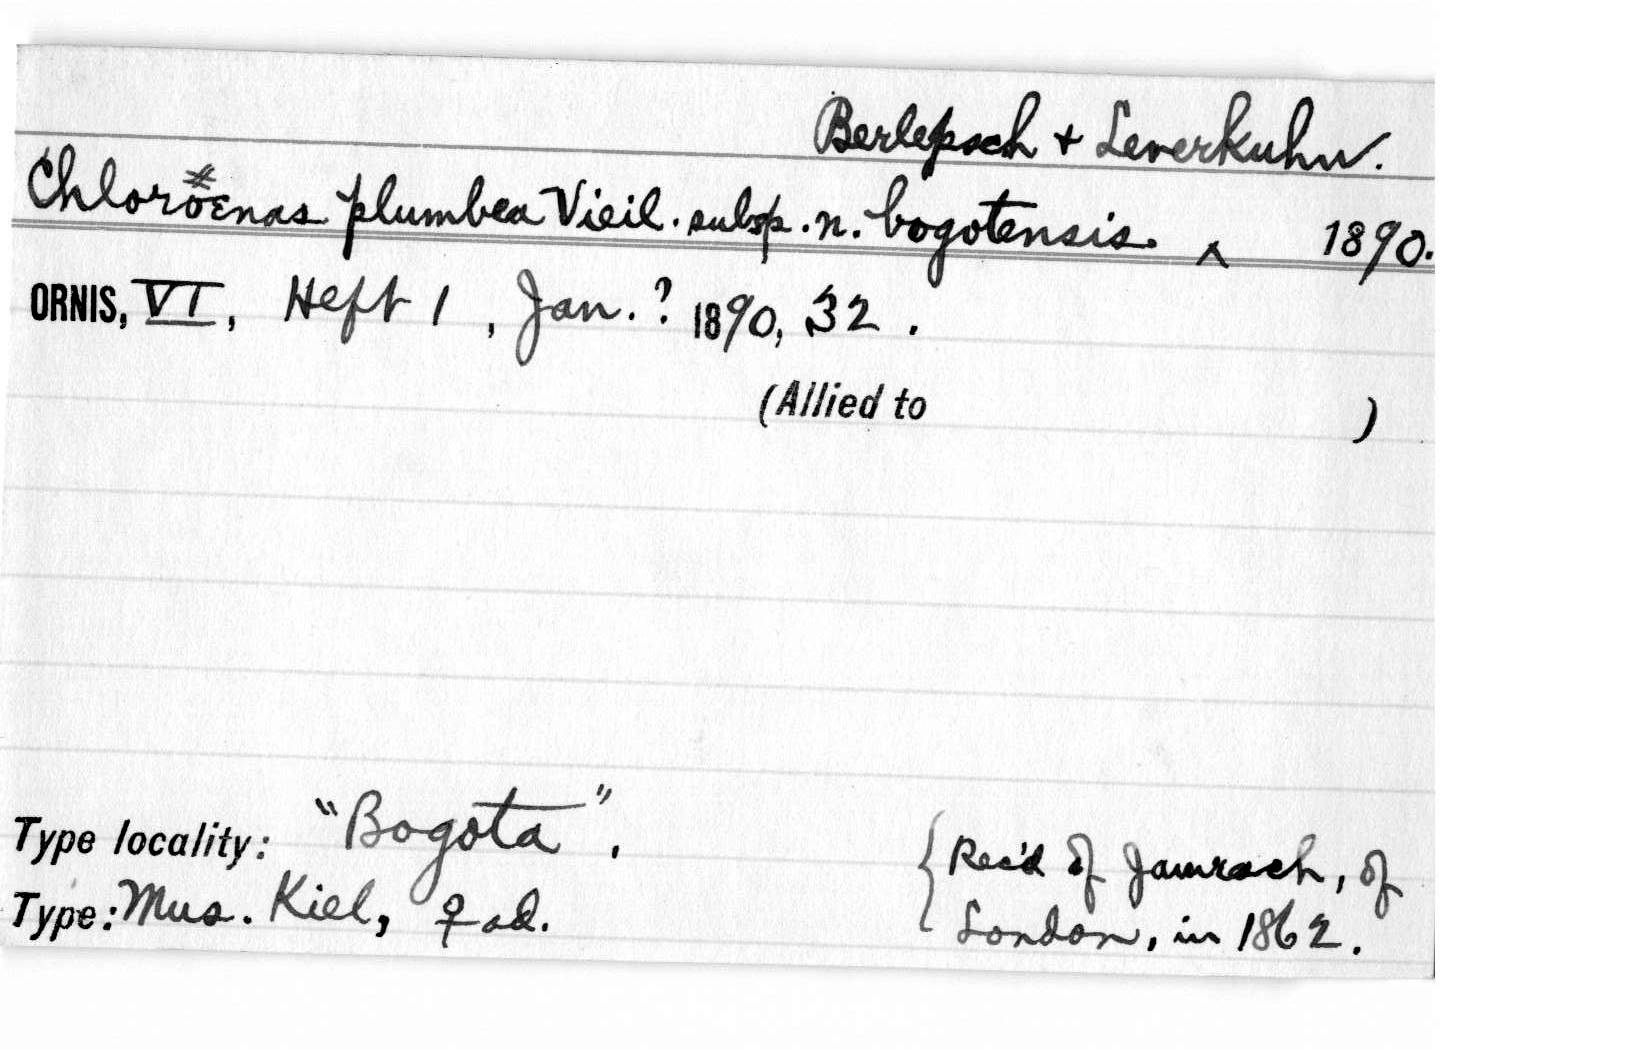 Berlepsch + Leverkuhn.
Chloröenas plumbea Vieil. subsp. n. bogotensis. ^ 1890.
ORNIS, VI, Heft 1, Jan.? 1890, 32.
(Allied to )
Type locality: "Bogota".
Type: Mus. Kiel, ♀ ad.
{ Rec'd of Jamrach, of
London, in 1862.